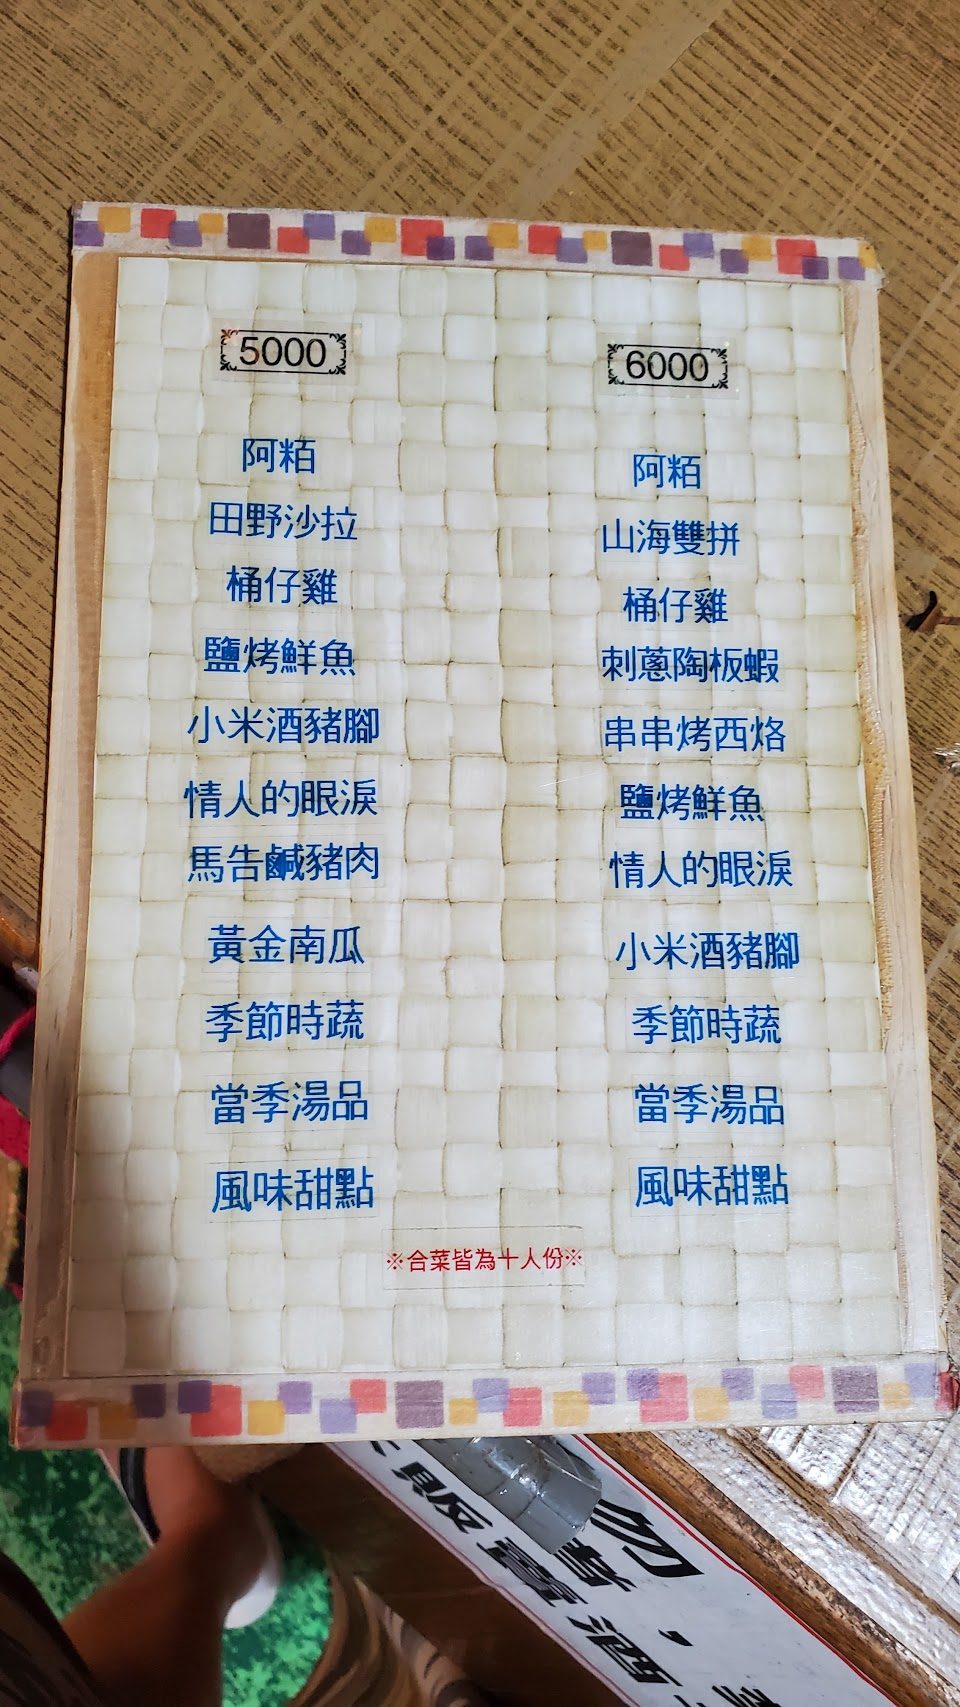 5000
阿粨
田野沙拉
桶仔雞
鹽烤鮮魚
小米酒豬腳
情人的眼淚
馬告鹹豬肉
黃金南瓜
季節時蔬
當季湯品
風味甜點
6000
阿粨
山海雙拼
桶仔雞
刺蔥陶板蝦
串串烤西烙
鹽烤鮮魚
情人的眼淚
小米酒豬腳
季節時蔬
當季湯品
風味甜點
※合菜皆為十人份※
勿
者，
販賣酒